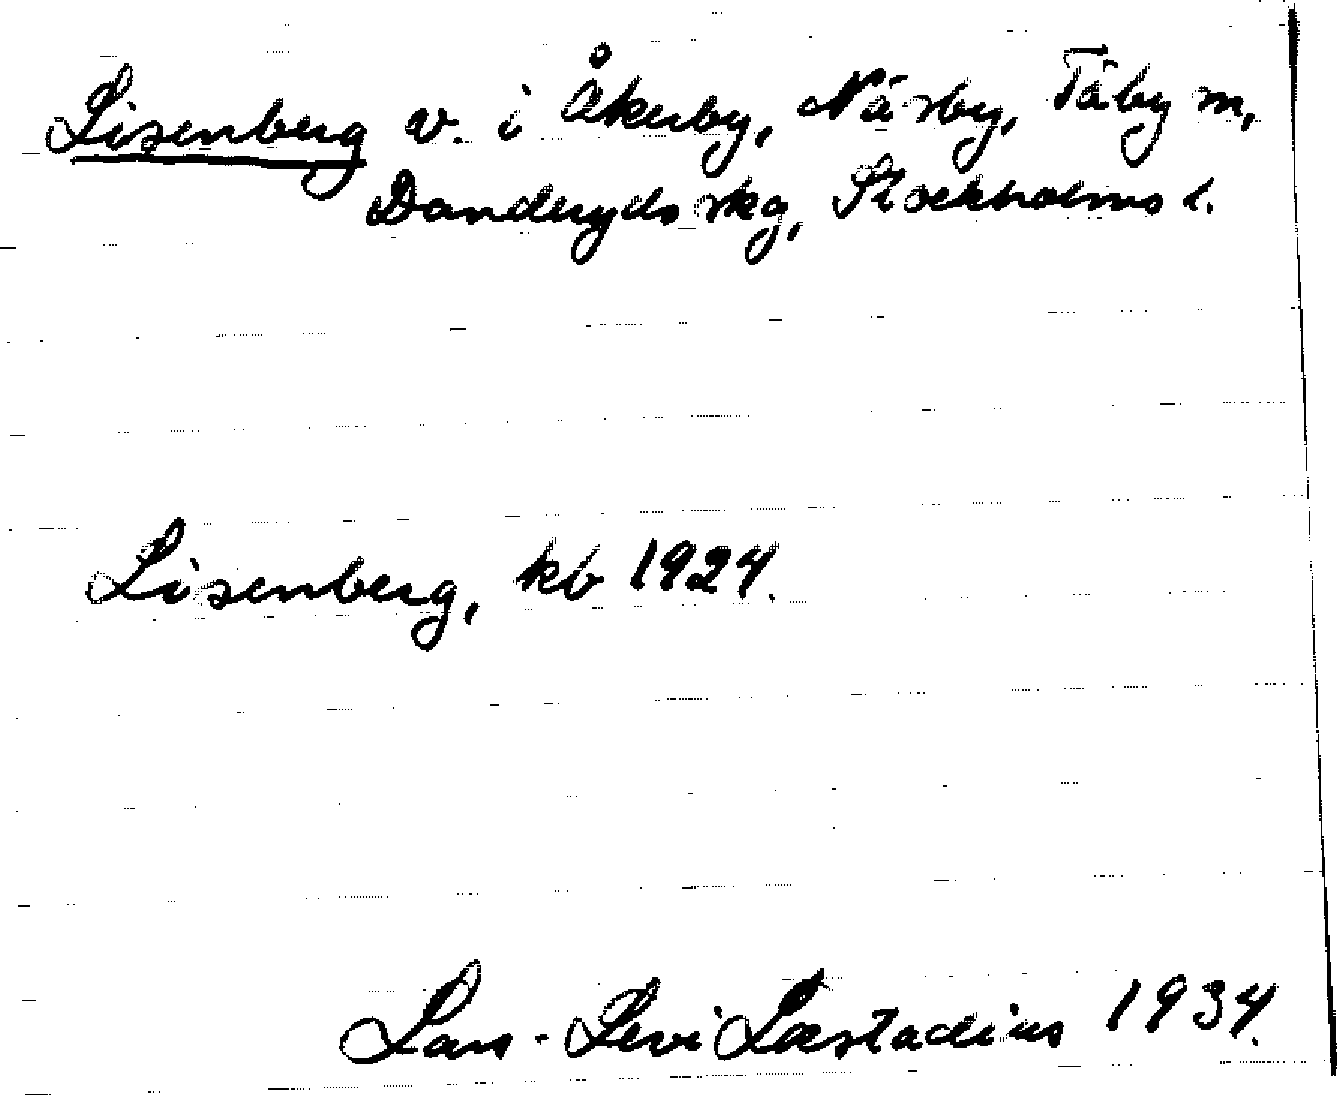 Lisenberg v. i Åkerby, Näsby, Täby sn,
Danderyds skg, Stockholms l.
Lisenberg, kb 1924.
Lars-Levi Læstadius 1934.